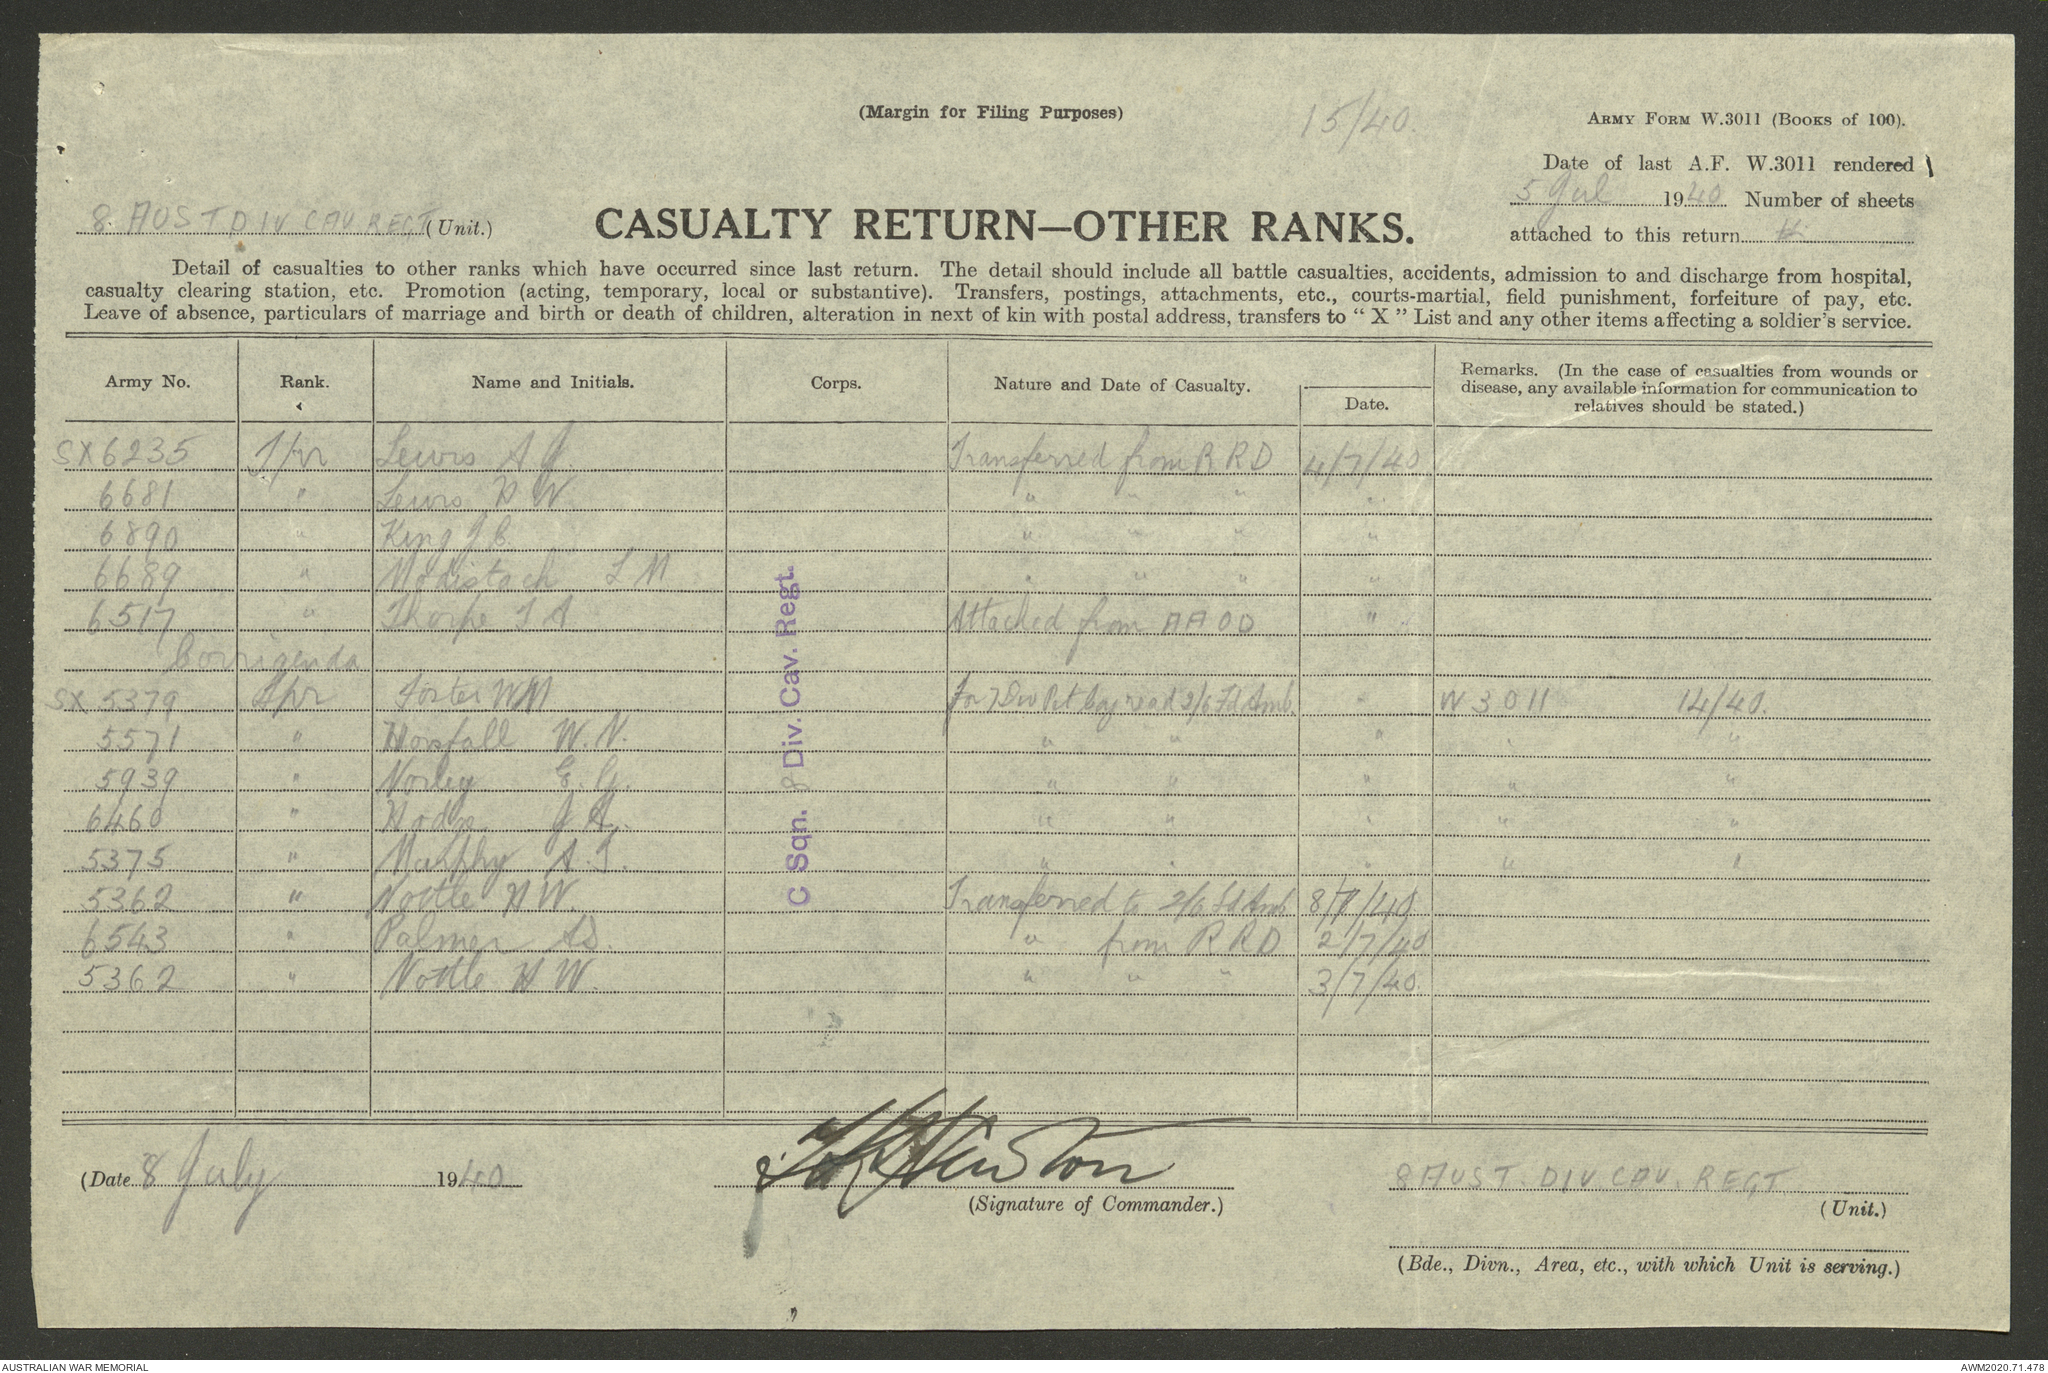 (Margin for Filing Purposes)
15/40.
ARMY FORM W.3011 (BOOKS of 100).
Date of last A.F. W.3011 rendered
5 Jul 1940 Number of sheets
attached to this return
8. AUST DIV CAV REGT (Unit.)
CASUALTY RETURN—OTHER RANKS.
Detail of casualties to other ranks which have occurred since last return. The detail should include all battle casualties, accidents, admission to and discharge from hospital,
casualty clearing station, etc. Promotion (acting, temporary, local or substantive). Transfers, postings, attachments, etc., courts-martial, field punishment, forfeiture of pay, etc.
Leave of absence, particulars of marriage and birth or death of children, alteration in next of kin with postal address, transfers to " X " List and any other items affecting a soldier's service.
Army No. Rank. Name and Initials. Corps. Nature and Date of Casualty. Date. Remarks. (In the case of casualties from wounds or
disease, any available information for communication to
relatives should be stated.)
SX 6235 Tpr Lewis A J. Transferred from R R D 4/7/40
6681 " Lewis H W. " " " "
6890 " King J C. " " " "
6689 " Modistach L M " " " "
6517 " Thorpe L A Attached from AAOD "
Corrigenda
SX 5379 Tpr Foster W M For 7 Div Pet Coy read 2/6 Fd Amb. " W 3011 14/40.
5571 " Horsfall W. N. " " " " "
5939 " Norley E. G. " " " " "
6460 " J A. " " " " "
5375 " Murphy A. T. " " " " "
5362 " Nottle H W. Transferred to 2/6 Fd Amb 8/7/40
6543 " Palmer A D. " from R R D 2/7/40
5362 " Nottle H W. " " " 3/7/40.
C Sqn. 8 Div. Cav. Regt.
(Date 8 July 1940
(Signature of Commander.)
8 AUST. DIV. CAV. REGT
(Unit.)
(Bde., Divn., Area, etc., with which Unit is serving.)
AUSTRALIAN WAR MEMORIAL
AWM2020.71.478